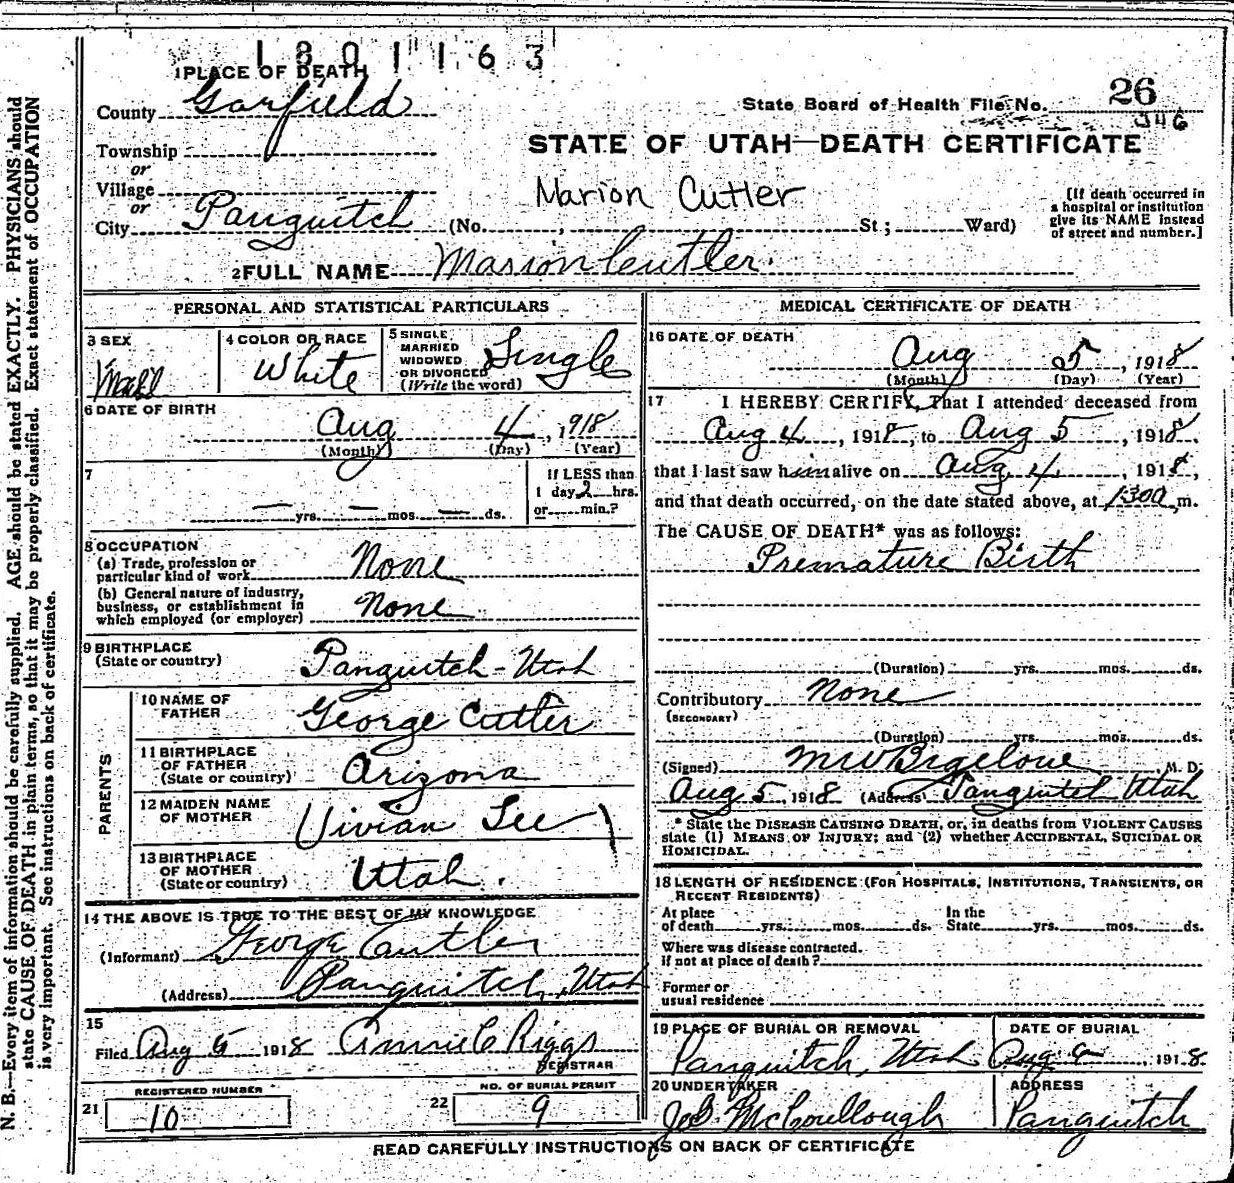 1801163
1 PLACE OF DEATH
County Garfield
State Board of Health File No. 26
346
STATE OF UTAH—DEATH CERTIFICATE
Township
or
Village
or
City Panguitch (No. ; St ; Ward)
Marion Cutler
[If death occurred in
a hospital or institution
give its NAME instead
of street and number.]
2 FULL NAME Marion Cutler.
PERSONAL AND STATISTICAL PARTICULARS
3 SEX
Male
4 COLOR OR RACE
White
5 SINGLE,
MARRIED
WIDOWED
OR DIVORCED
(Write the word)
Single
6 DATE OF BIRTH
Aug 4, 1918
(Month) (Day) (Year)
7
— yrs. — mos. — ds.
If LESS than
1 day 2 hrs.
or min.?
8 OCCUPATION
(a) Trade, profession or
particular kind of work None
(b) General nature of industry,
business, or establishment in
which employed (or employer) None
9 BIRTHPLACE
(State or country) Panguitch - Utah
PARENTS
10 NAME OF
FATHER George Cutler
11 BIRTHPLACE
OF FATHER
(State or country) Arizona
12 MAIDEN NAME
OF MOTHER Vivian Lee
13 BIRTHPLACE
OF MOTHER
(State or country) Utah.
14 THE ABOVE IS TRUE TO THE BEST OF MY KNOWLEDGE
(Informant) George Cutler
(Address) Panguitch, Utah
15
Filed Aug 6 1918 Annie C Riggs
REGISTRAR
REGISTERED NUMBER
21 10
NO. OF BURIAL PERMIT
22 9
MEDICAL CERTIFICATE OF DEATH
16 DATE OF DEATH
Aug 5, 1918
(Month) (Day) (Year)
17 I HEREBY CERTIFY, That I attended deceased from
Aug 4, 1918, to Aug 5, 1918,
that I last saw him alive on Aug 4, 1918,
and that death occurred, on the date stated above, at 1300 m.
The CAUSE OF DEATH* was as follows:
Premature Birth
(Duration) yrs. mos. ds.
Contributory None
(SECONDARY)
(Duration) yrs. mos. ds.
(Signed) M W Bigelow M. D.
Aug 5, 1918 (Address) Panguitch Utah
* State the DISEASE CAUSING DEATH, or, in deaths from VIOLENT CAUSES
state (1) MEANS OF INJURY; and (2) whether ACCIDENTAL, SUICIDAL OR
HOMICIDAL.
18 LENGTH OF RESIDENCE (FOR HOSPITALS, INSTITUTIONS, TRANSIENTS, OR
RECENT RESIDENTS)
At place
of death yrs. mos. ds.
In the
State yrs. mos. ds.
Where was disease contracted.
if not at place of death?
Former or
usual residence
19 PLACE OF BURIAL OR REMOVAL
Panguitch, Utah
DATE OF BURIAL
Aug 1918
20 UNDERTAKER
McCoullough
ADDRESS
Panguitch
READ CAREFULLY INSTRUCTIONS ON BACK OF CERTIFICATE
N. B.—Every item of information should be carefully supplied. AGE should be stated EXACTLY. PHYSICIANS should
state CAUSE OF DEATH in plain terms, so that it may be properly classified. Exact statement of OCCUPATION
is very important. See instructions on back of certificate.